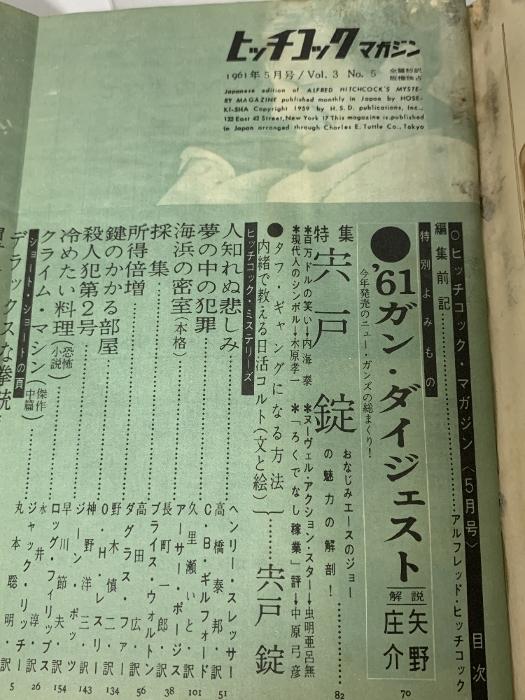 ヒッチコックマガジン
1961年5月号/Vol. 3 No. 5 全篇新訳 版権独占
Japanese edition of ALFRED HITCHCOCK'S MYSTE-
RY MAGAZINE published monthly in Japan by HOSE-
KI-SHA Copyright 1959 by H.S.D. publications, Inc.,
122 East 42 Street, New York 17 This magazine is published
in Japan arranged through Charles E. Tuttle Co., Tokyo
○ヒッチコック・マガジン〈5月号〉 目次
編集前記………アルフレッド・ヒッチコック
特別よみもの
●'61ガン・ダイジェスト 解説 矢野庄介 70
今年発売のニュー・ガンズの総まくり!
特集 宍戸錠 おなじみエースのジョーの魅力の解剖!………82
*百万ドルの笑い→内海泰 *ヌーヴェル・アクション・スター→虫明亜呂無
*現代人のシンボル→木原孝一 *「ろくでなし稼業」評→中原弓彦
●タフ・ギャングになる方法
内緒で教える日活コルト(文と絵)………宍戸錠
ヒッチコック・ミステリーズ
人知れぬ悲しみ………ヘンリー・スレッサー 高橋泰邦・訳 51
夢の中の犯罪………C・B・ギルフォード 久里瀬いと・訳 101
海浜の密室(本格)………アーサー・ポージス 長町一郎・訳 38
採集………ブライス・ウォルトン 高田広・訳 56
所得倍増………ダグラス・ファー 野木慎二・訳 134
鍵のかかる部屋………O・H・レスリー 神野洋三・訳 143
殺人犯第2号………早川節夫・訳 154
冷めたい料理(恐怖小説)………ロッグ・フィリップス 永井淳・訳 26
クライム・マシン(傑作中篇)………ジャック・リッチー 丸本聰明・訳 5
ショート・ショートの頁
デラックスな拳銃